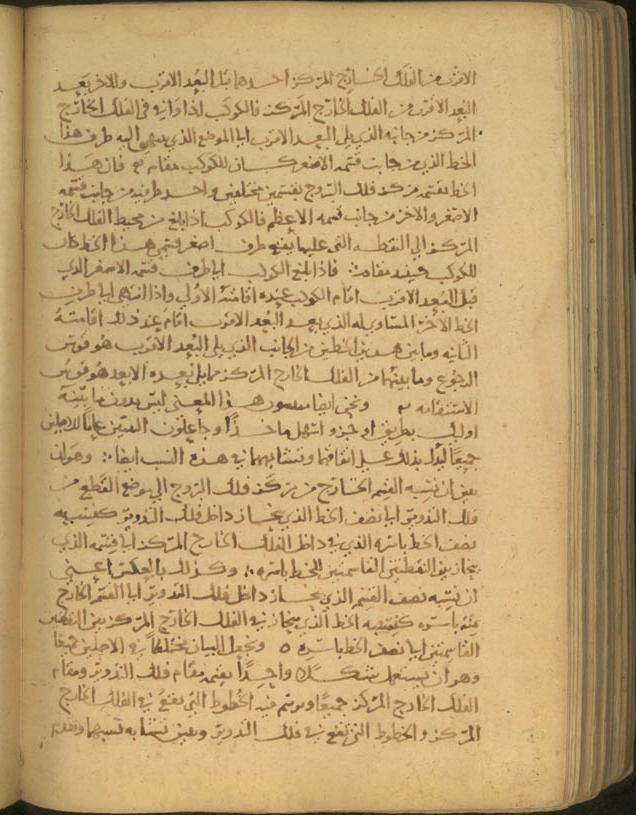 الاقرب من الفلك الخارج المركز احدهما قبل البعد الاقرب والاخر بعد
البعد الاقرب من الفلك الخارج المركز فالكوكب اذا وازى في الفلك الخارج
المركز من جانبه الذي يلي البعد الاقرب ايا الموضع الذي ينتهي اليه طرف هذا
الخط الذي من جانب قسمه الاصغر كان للكوكب مقام فان هذا
الخط يقسمه مركز فلك البروج بقسمين مختلفين واحد طرفيه من جانب قسمه
الاصغر والاخر من جانب قسمه الاعظم فالكوكب اذا بلغ من محيط الفلك الخارج
المركز الى النقطه التي عليها يقع طرف اصغر قسمي هذا الخط كان
للكوكب فيه مقامه فاذا بلغ الكوكب ايا طرف قسمه الاصغر الذي
قبل البعد الاقرب اقام الكوكب عنده اقامته الاولى واذا انتهى ايا طرف
الخط الاخر المساوي له الذي بعد البعد الاقرب اقام عند ذلك اقامته
الثانيه وما بين هذين الخطين من الجانب الذي يلي البعد الاقرب هو قوس
الرجوع وما بينهما من الفلك الخارج المركز مما يلي بعده الابعد هو قوس
الاستقامه ونحن ايضا هذا المعنى ليس بدون ما بينه
اوليك بطريق اوجز واسهل ماخذا وجاعلون عاما للاصلين
جميعا ليدل بذلك على اتفاقهما وتشابههما في هذه النسب ايضا وهو ان
نبين ان نسبه القسم الخارج من مركز فلك البروج الى موضع القطع من
فلك التدوير ايا نصف الخط الذي ينحاز داخل فلك التدوير كنسبه
نصف الخط باسره الذي في داخل الفلك الخارج المركز ايا قسمه الذي
ينحاز بين النقطتين القاسمتين للخط باسره وكذلك بالعكس اعني
ان نسبه نصف القسم الذي ينحاز داخل فلك التدوير ايا القسم الخارج
منه باسره كنسبه الخط الذي ينحاز في الفلك الخارج المركز بين النقطتين
القاسمتين ايا نصف الخط باسره ونجعل البيان مختلطا في الاصلين جميعا
وهو ان نستعمل شكلا واحدا يعمه مقام فلك التدوير ومقام
الفلك الخارج المركز جميعا ونرسم فيه الخطوط التي تقع في الفلك الخارج
المركز والخطوط التي تقع في فلك التدوير ونبين تشابه نسبهما ونقدم